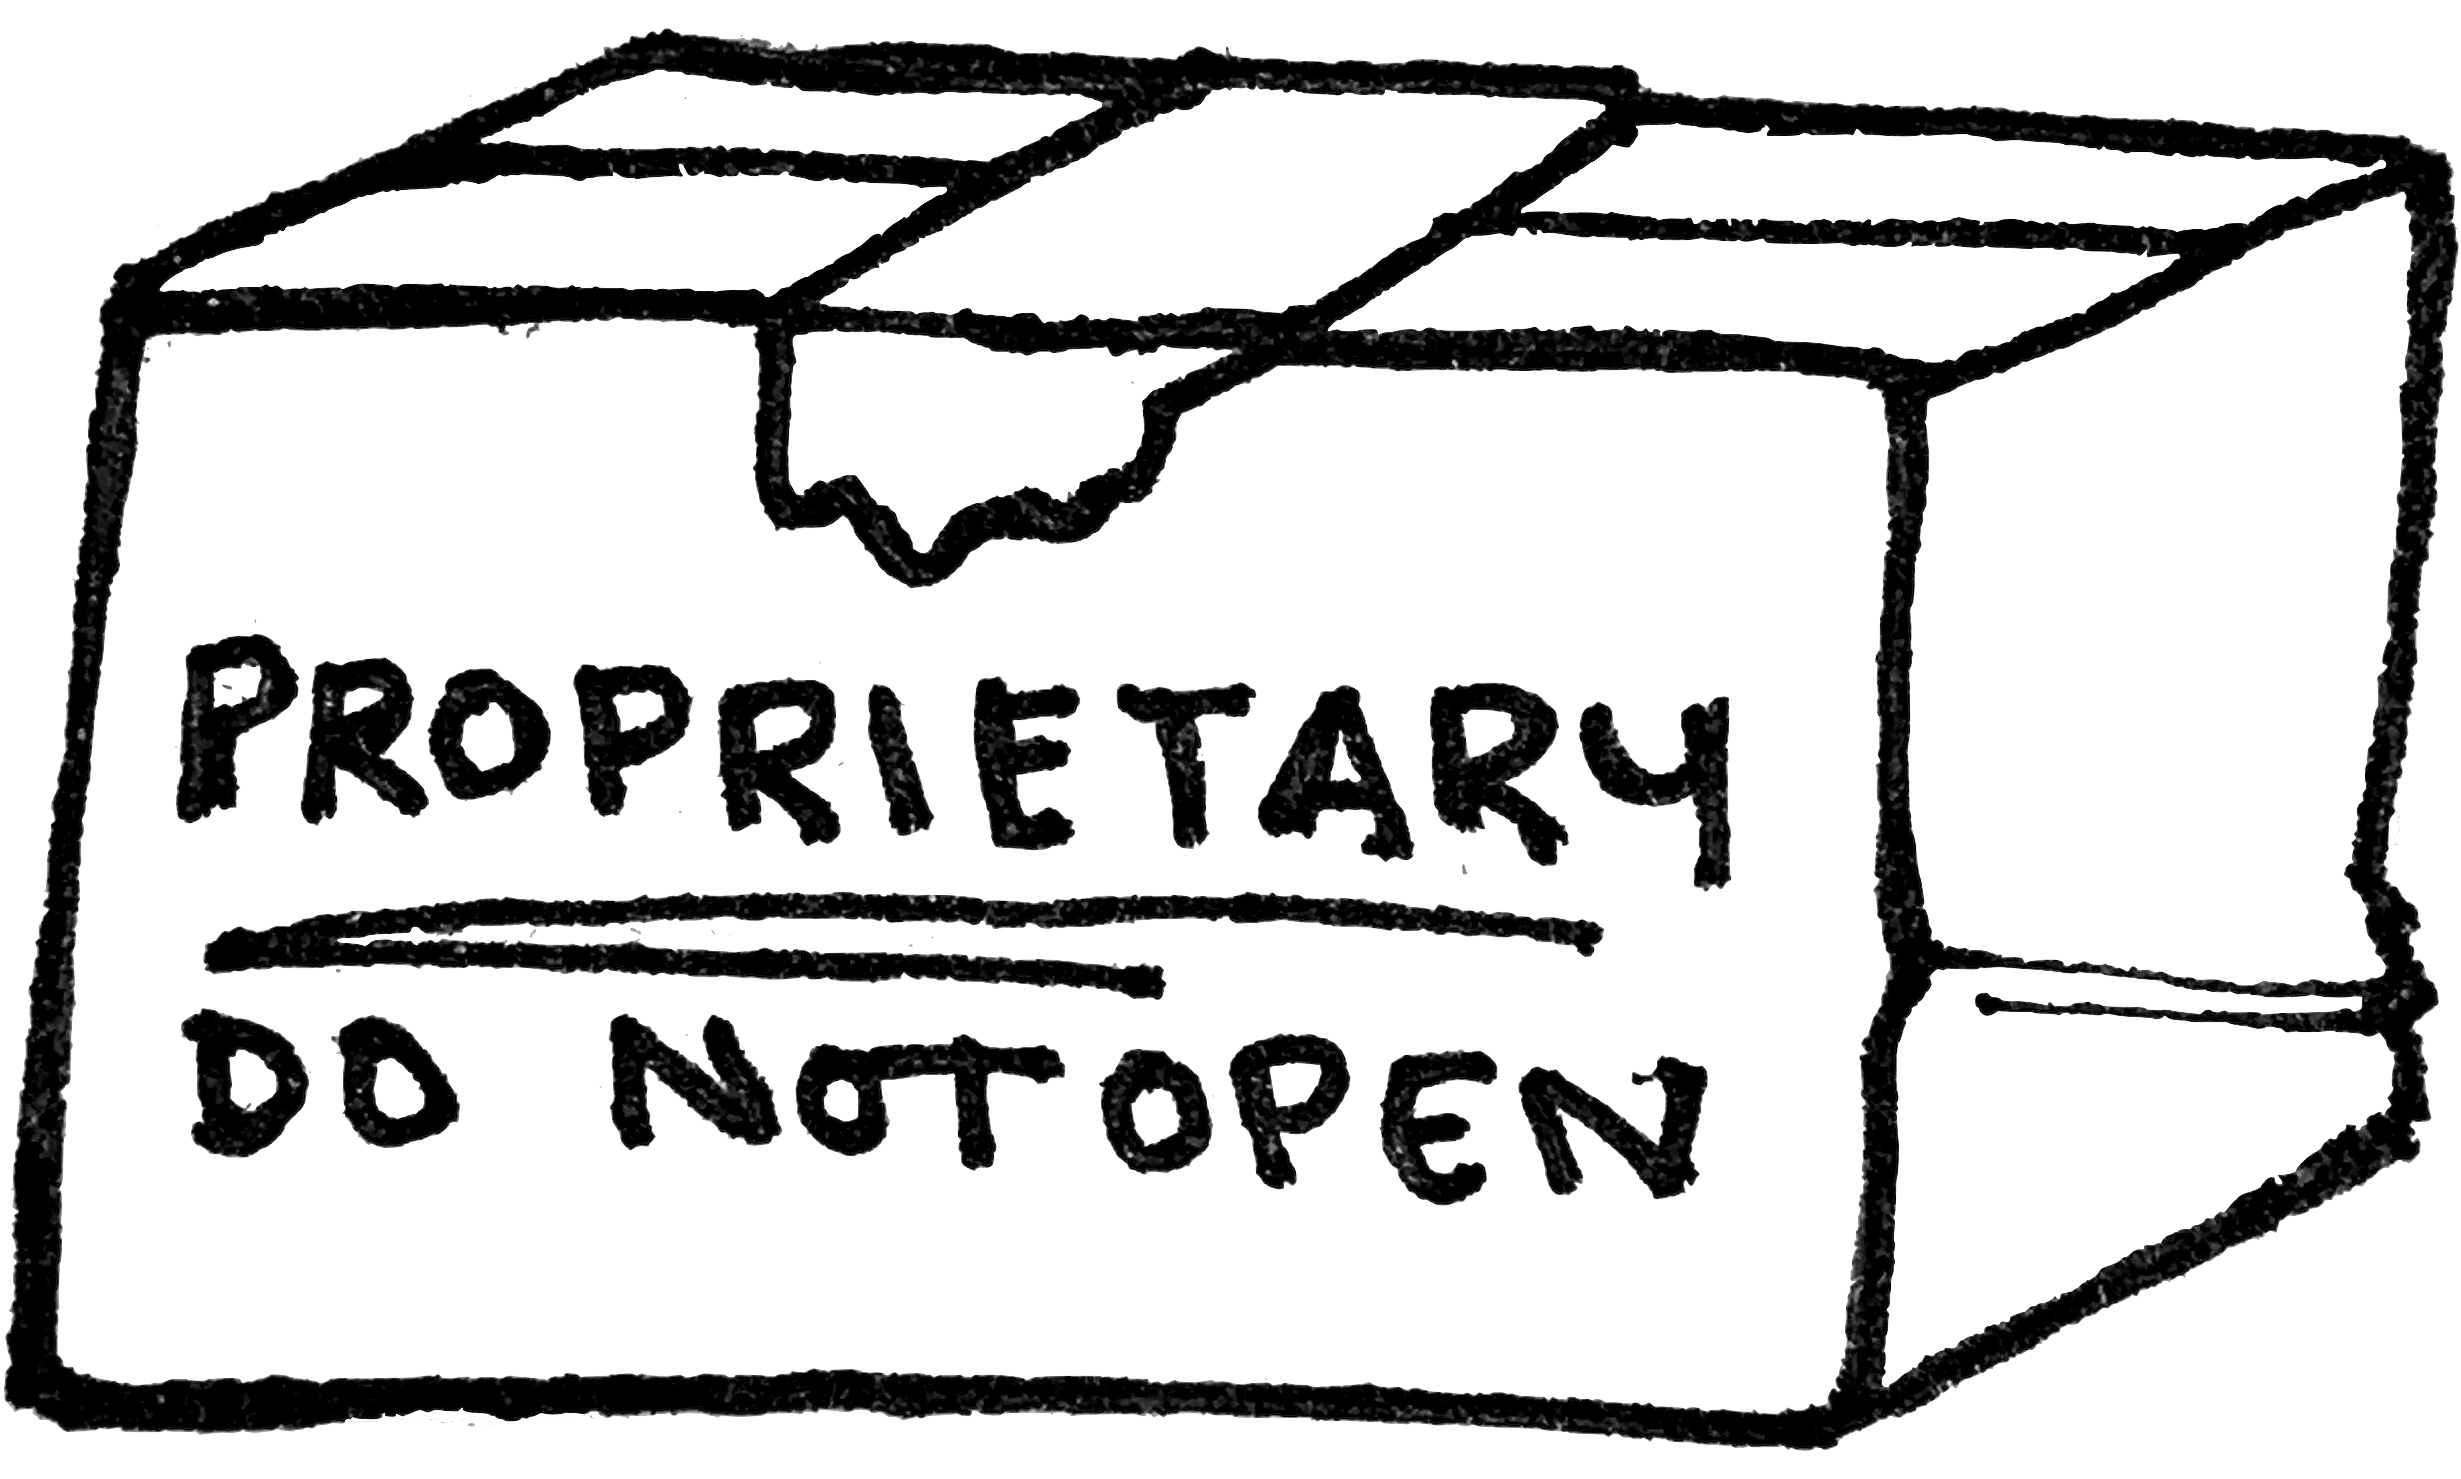 PROPRIETARY
DO NOT OPEN